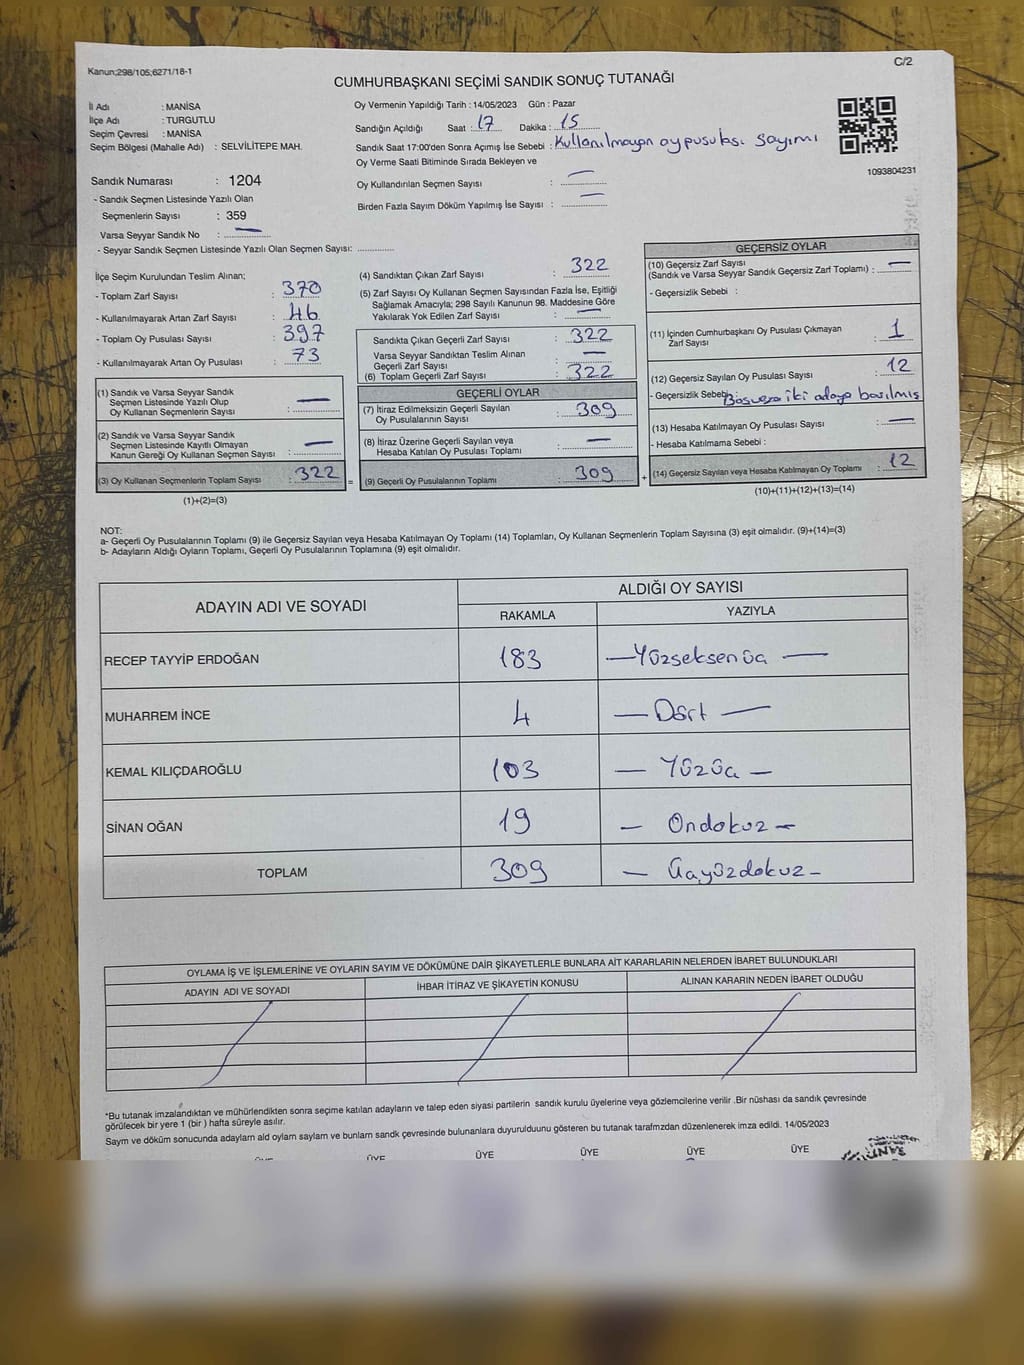 Kanun;298/105;6271/18-1
C/2
CUMHURBAŞKANI SEÇİMİ SANDIK SONUÇ TUTANAĞI
İl Adı : MANİSA
İlçe Adı : TURGUTLU
Seçim Çevresi : MANİSA
Seçim Bölgesi (Mahalle Adı) : SELVİLİTEPE MAH.
Sandık Numarası : 1204
- Sandık Seçmen Listesinde Yazılı Olan
Seçmenlerin Sayısı : 359
Varsa Seyyar Sandık No : —
- Seyyar Sandık Seçmen Listesinde Yazılı Olan Seçmen Sayısı: ..............
Oy Vermenin Yapıldığı Tarih : 14/05/2023 Gün : Pazar
Sandığın Açıldığı Saat : 17 Dakika : 15
Sandık Saat 17:00'den Sonra Açımış İse Sebebi : Kullanılmayan oy pusulası sayımı
Oy Verme Saati Bitiminde Sırada Bekleyen ve
Oy Kullandırılan Seçmen Sayısı : —
Birden Fazla Sayım Döküm Yapılmış İse Sayısı : —
1093804231
İlçe Seçim Kurulundan Teslim Alınan;
- Toplam Zarf Sayısı : 370
- Kullanılmayarak Artan Zarf Sayısı : 46
- Toplam Oy Pusulası Sayısı : 397
- Kullanılmayarak Artan Oy Pusulası : 73
(1) Sandık ve Varsa Seyyar Sandık
Seçmen Listesinde Yazılı Olup
Oy Kullanan Seçmenlerin Sayısı : —
(2) Sandık ve Varsa Seyyar Sandık
Seçmen Listesinde Kayıtlı Olmayan
Kanun Gereği Oy Kullanan Seçmen Sayısı : —
(3) Oy Kullanan Seçmenlerin Toplam Sayısı : 322
(1)+(2)=(3)
(4) Sandıktan Çıkan Zarf Sayısı : 322
(5) Zarf Sayısı Oy Kullanan Seçmen Sayısından Fazla İse, Eşitliği
Sağlamak Amacıyla; 298 Sayılı Kanunun 98. Maddesine Göre
Yakılarak Yok Edilen Zarf Sayısı : —
Sandıkta Çıkan Geçerli Zarf Sayısı : 322
Varsa Seyyar Sandıktan Teslim Alınan
Geçerli Zarf Sayısı : —
(6) Toplam Geçerli Zarf Sayısı : 322
GEÇERLİ OYLAR
(7) İtiraz Edilmeksizin Geçerli Sayılan
Oy Pusulalarının Sayısı : 309
(8) İtiraz Üzerine Geçerli Sayılan veya
Hesaba Katılan Oy Pusulası Toplamı : —
= (9) Geçerli Oy Pusulalarının Toplamı : 309 +
GEÇERSİZ OYLAR
(10) Geçersiz Zarf Sayısı
(Sandık ve Varsa Seyyar Sandık Geçersiz Zarf Toplamı) : —
- Geçersizlik Sebebi :
(11) İçinden Cumhurbaşkanı Oy Pusulası Çıkmayan
Zarf Sayısı : 1
(12) Geçersiz Sayılan Oy Pusulası Sayısı : 12
- Geçersizlik Sebebi Boş veya iki adaya basılmış
(13) Hesaba Katılmayan Oy Pusulası Sayısı : —
- Hesaba Katılmama Sebebi :
(14) Geçersiz Sayılan veya Hesaba Katılmayan Oy Toplamı : 12
(10)+(11)+(12)+(13)=(14)
NOT:
a- Geçerli Oy Pusulalarının Toplamı (9) ile Geçersiz Sayılan veya Hesaba Katılmayan Oy Toplamı (14) Toplamları, Oy Kullanan Seçmenlerin Toplam Sayısına (3) eşit olmalıdır. (9)+(14)=(3)
b- Adayların Aldığı Oyların Toplamı, Geçerli Oy Pusulalarının Toplamına (9) eşit olmalıdır.
ADAYIN ADI VE SOYADI
ALDIĞI OY SAYISI
RAKAMLA YAZIYLA
RECEP TAYYİP ERDOĞAN 183 — Yüzseksenüç —
MUHARREM İNCE 4 — Dört —
KEMAL KILIÇDAROĞLU 103 — Yüzüç —
SİNAN OĞAN 19 — Ondokuz —
TOPLAM 309 — Üçyüzdokuz —
OYLAMA İŞ VE İŞLEMLERİNE VE OYLARIN SAYIM VE DÖKÜMÜNE DAİR ŞİKAYETLERLE BUNLARA AİT KARARLARIN NELERDEN İBARET BULUNDUKLARI
ADAYIN ADI VE SOYADI İHBAR İTİRAZ VE ŞİKAYETİN KONUSU ALINAN KARARIN NEDEN İBARET OLDUĞU
*Bu tutanak imzalandıktan ve mühürlendikten sonra seçime katılan adayların ve talep eden siyasi partilerin sandık kurulu üyelerine veya gözlemcilerine verilir .Bir nüshası da sandık çevresinde
görülecek bir yere 1 (bir ) hafta süreyle asılır.
Sayım ve döküm sonucunda adayların ald oyların sayıları ve bunların sandk çevresinde bulunanlara duyurulduunu gösteren bu tutanak tarafmzdan düzenlenerek imza edildi. 14/05/2023
ÜYE ÜYE ÜYE ÜYE ÜYE ÜYE